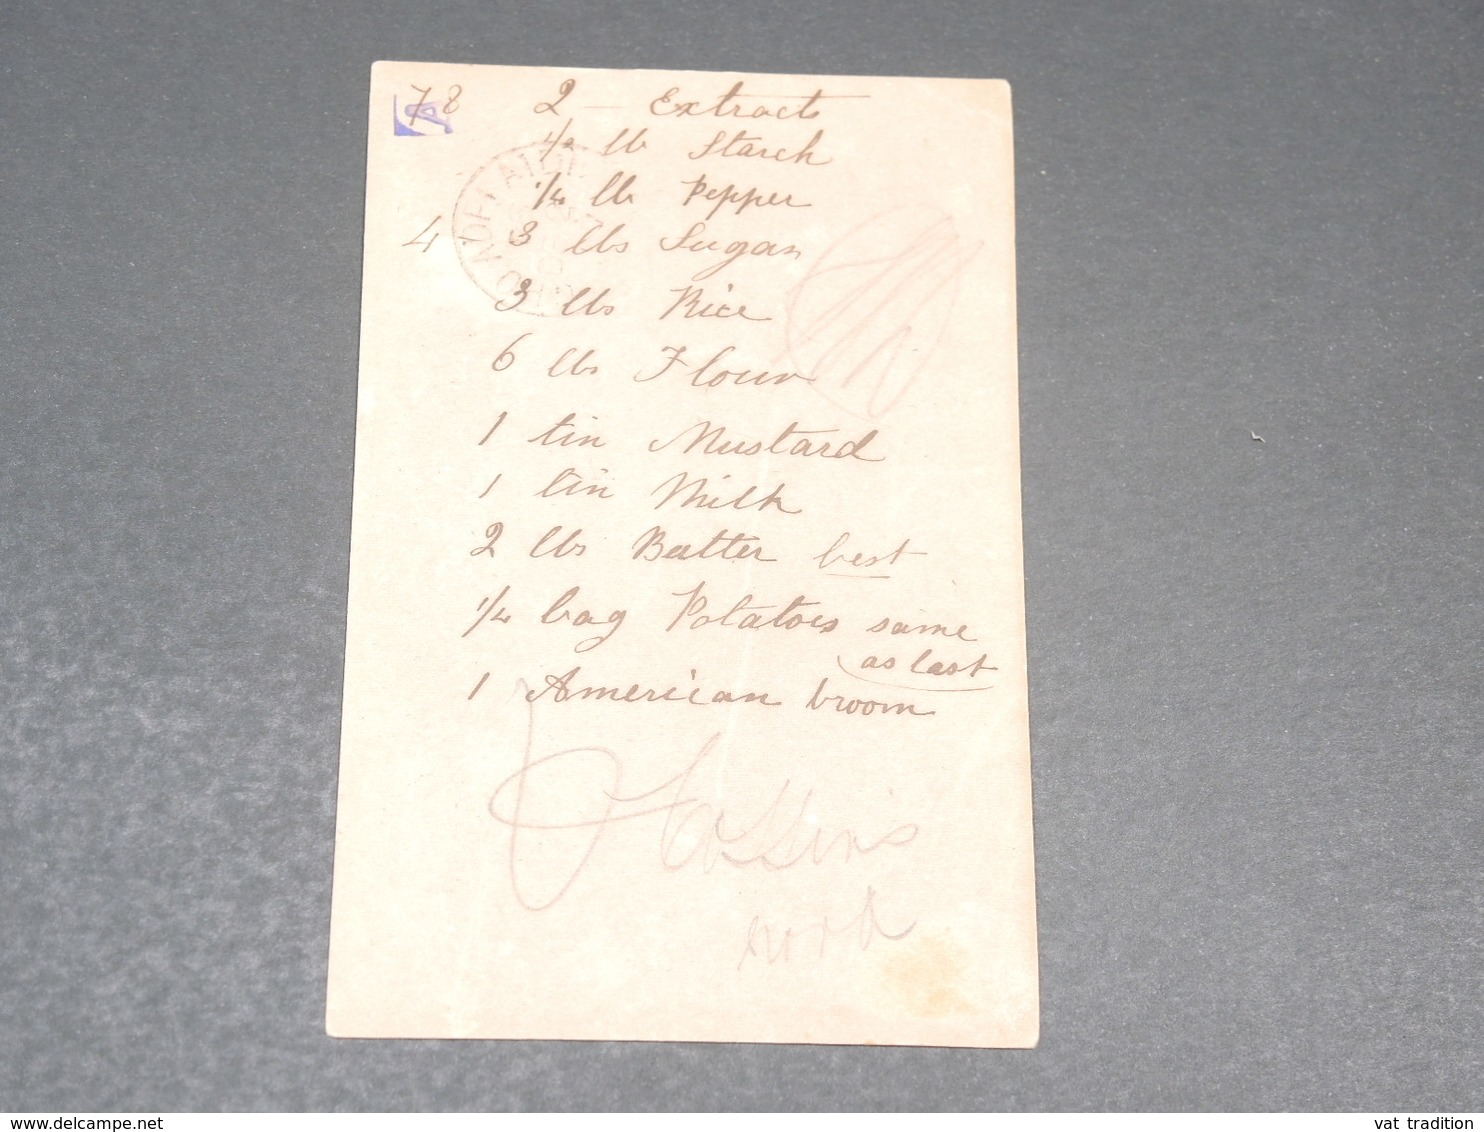 78 2 – Extract
1/2 lb Starch
1/4 lb Pepper
4 3 lbs Sugar
3 lbs Rice
6 lbs Flour
1 tin Mustard
1 tin Milk
2 lbs Butter best
1/4 bag Potatoes same
as last
1 American broom
ADELAIDE
vat tradition